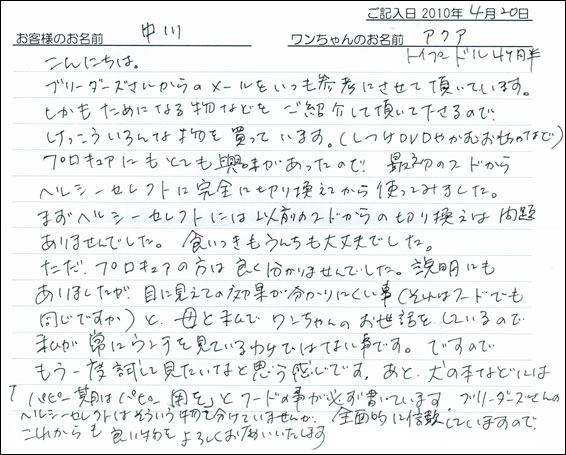 ご記入日 2010年 4月 20日
お客様のお名前 中川 ワンちゃんのお名前 アクア
トイプードル 4ヶ月半
こんにちは。
ブリーダーズさんからのメールをいつも参考にさせて頂いています。
しかもためになる物などをご紹介して頂いて下さるので
けっこういろんな物を買っています。(しつけDVDやかむおもちゃなど)
プロキュアにもとても興味があったので 最初のフードから
ヘルシーセレクトに完全に切り換えてから使ってみました。
まずヘルシーセレクトには以前のフードからの切り換えは問題
ありませんでした。食いつきもうんちも大丈夫でした。
ただ、プロキュアの方は良く分かりませんでした。説明にも
ありましたが、目に見えての効果が分かりにくい事(それはフードでも
同じですか)と、母と私でワンちゃんのお世話をしているので
私が常にウンチを見ているわけではない事です。ですので
もう一度試して見たいなと思う感じです。あと、犬の本などには
「パピー期はパピー用を」とフードの事が必ず書いています。ブリーダーズさんの
ヘルシーセレクトはそういう物を分けていませんが、全面的に信頼していますので
これからも良い物をよろしくお願いいたします